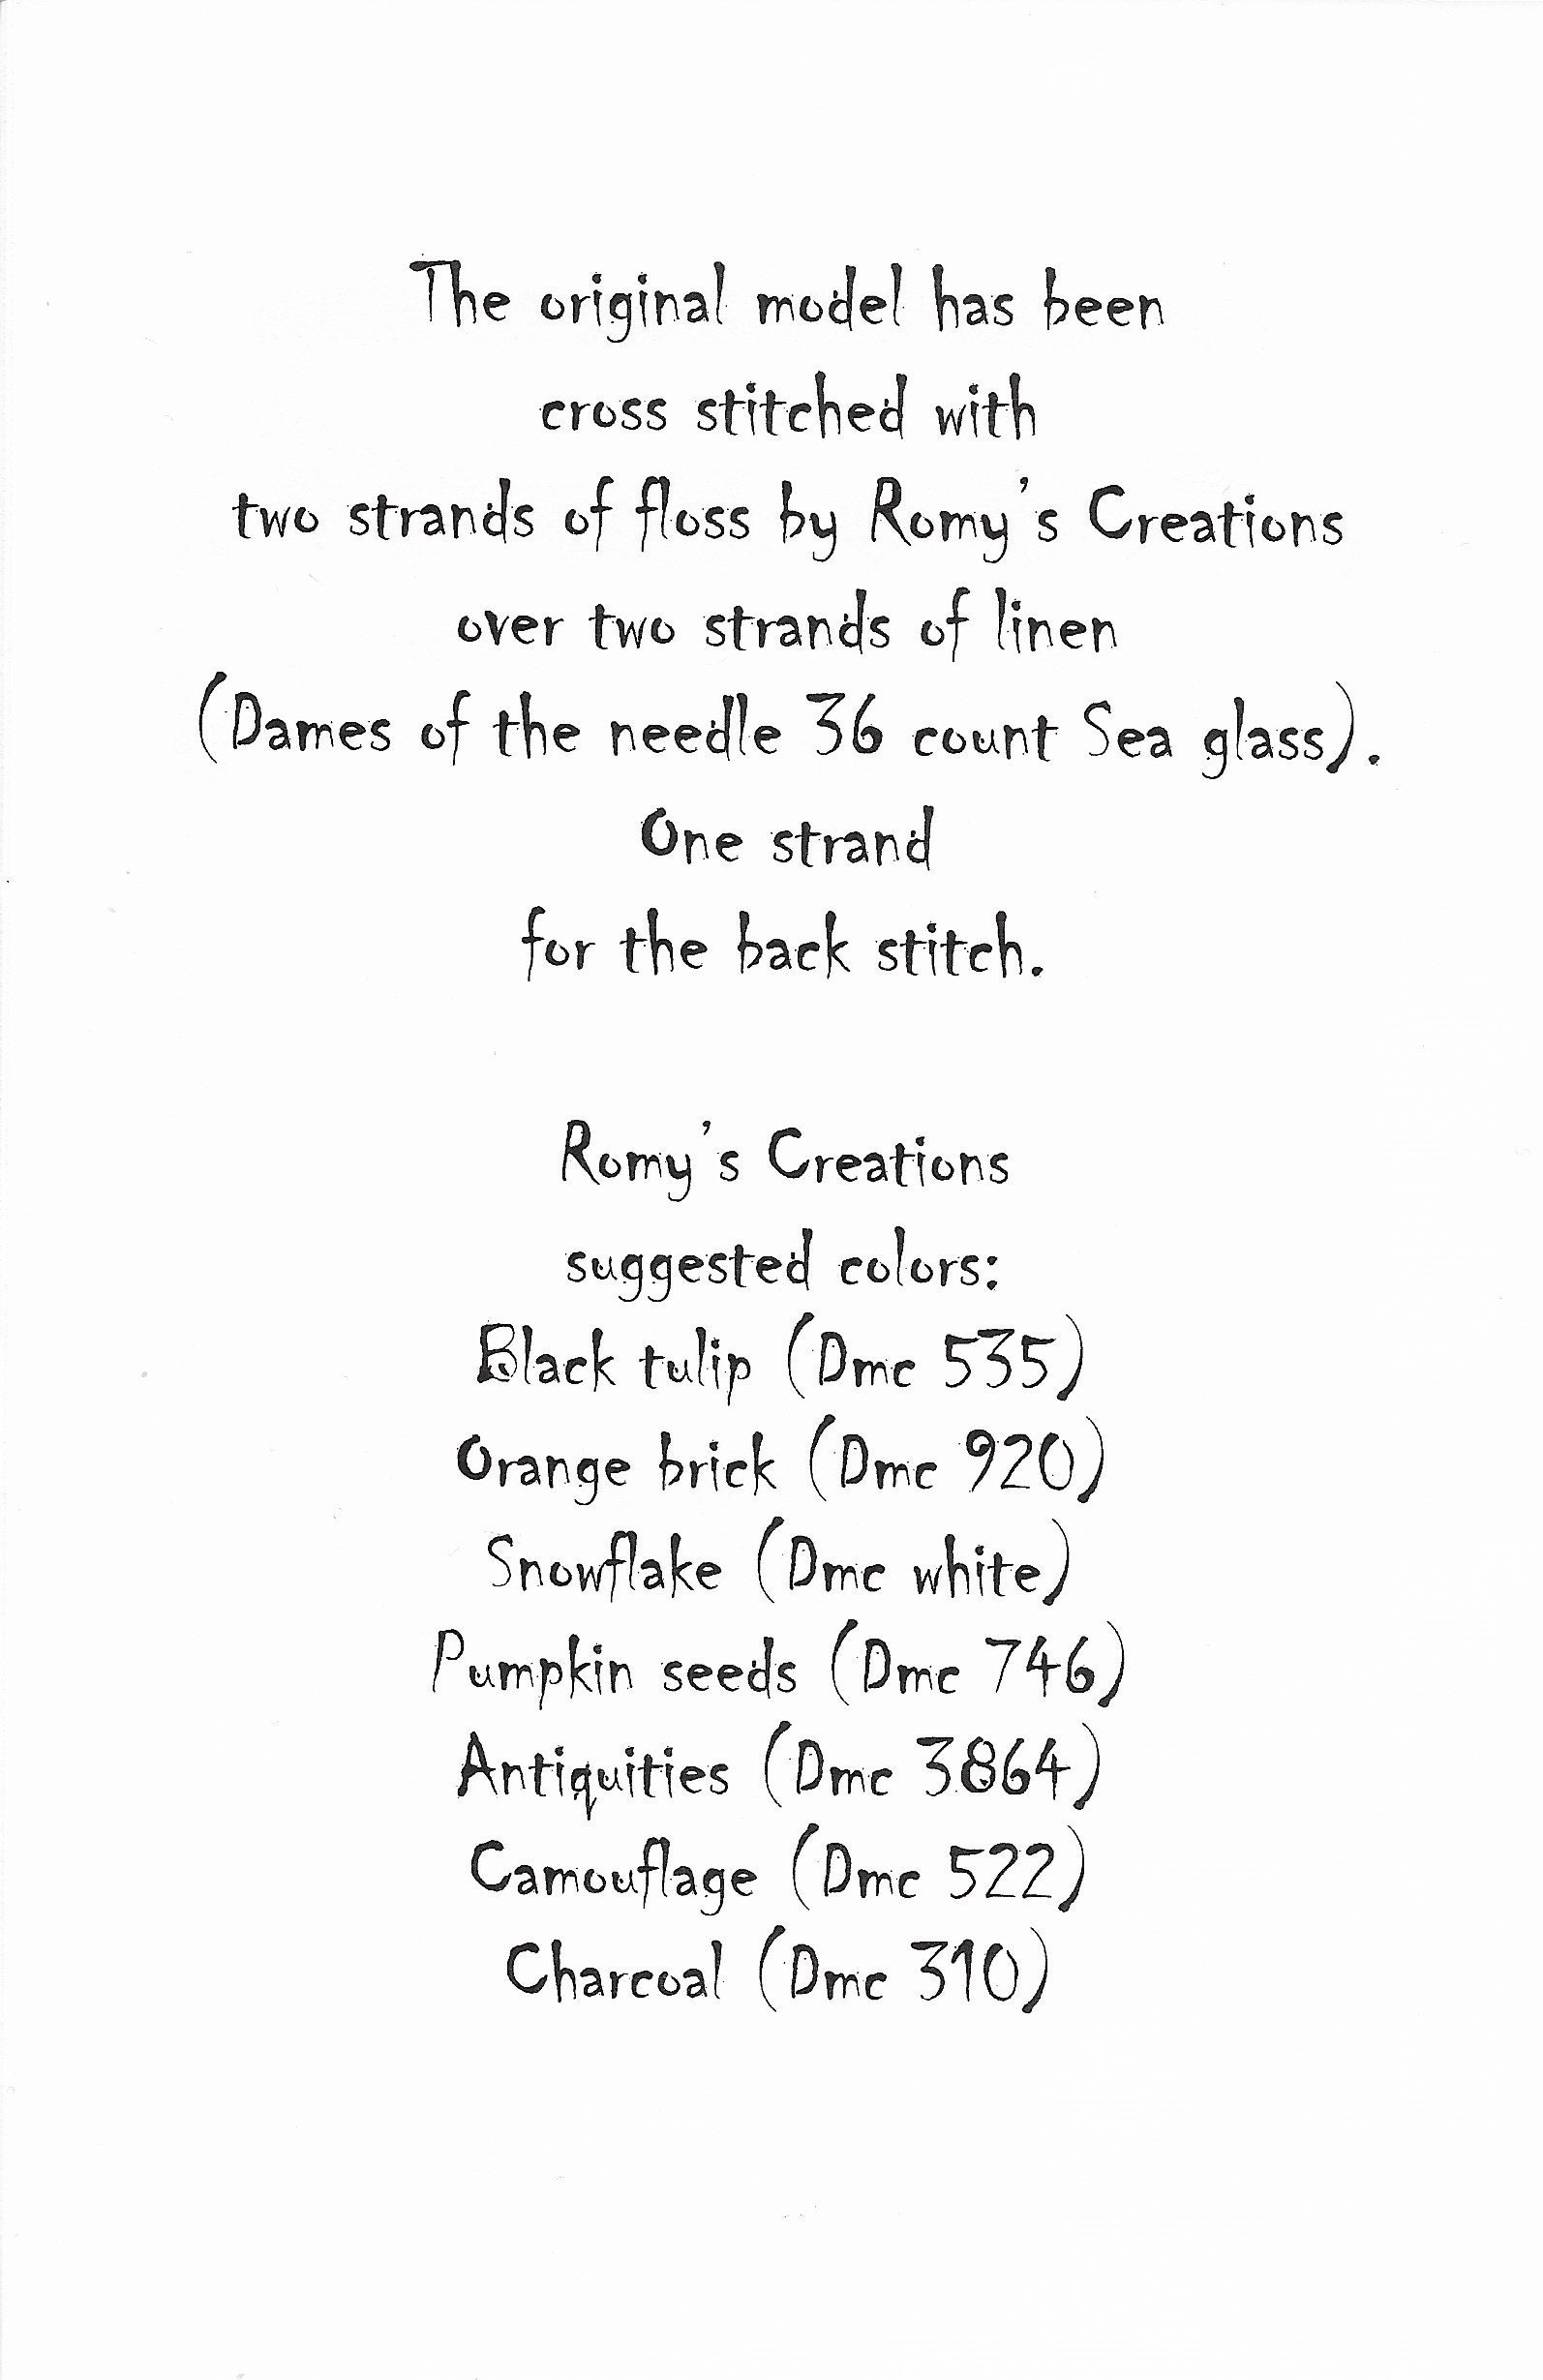 The original model has been
cross stitched with
two strands of floss by Romy's Creations
over two strands of linen
(Dames of the needle 36 count Sea glass).
One strand
for the back stitch.
Romy's Creations
suggested colors:
Black tulip (Dmc 535)
Orange brick (Dmc 920)
Snowflake (Dmc white)
Pumpkin seeds (Dmc 746)
Antiquities (Dmc 3864)
Camouflage (Dmc 522)
Charcoal (Dmc 310)